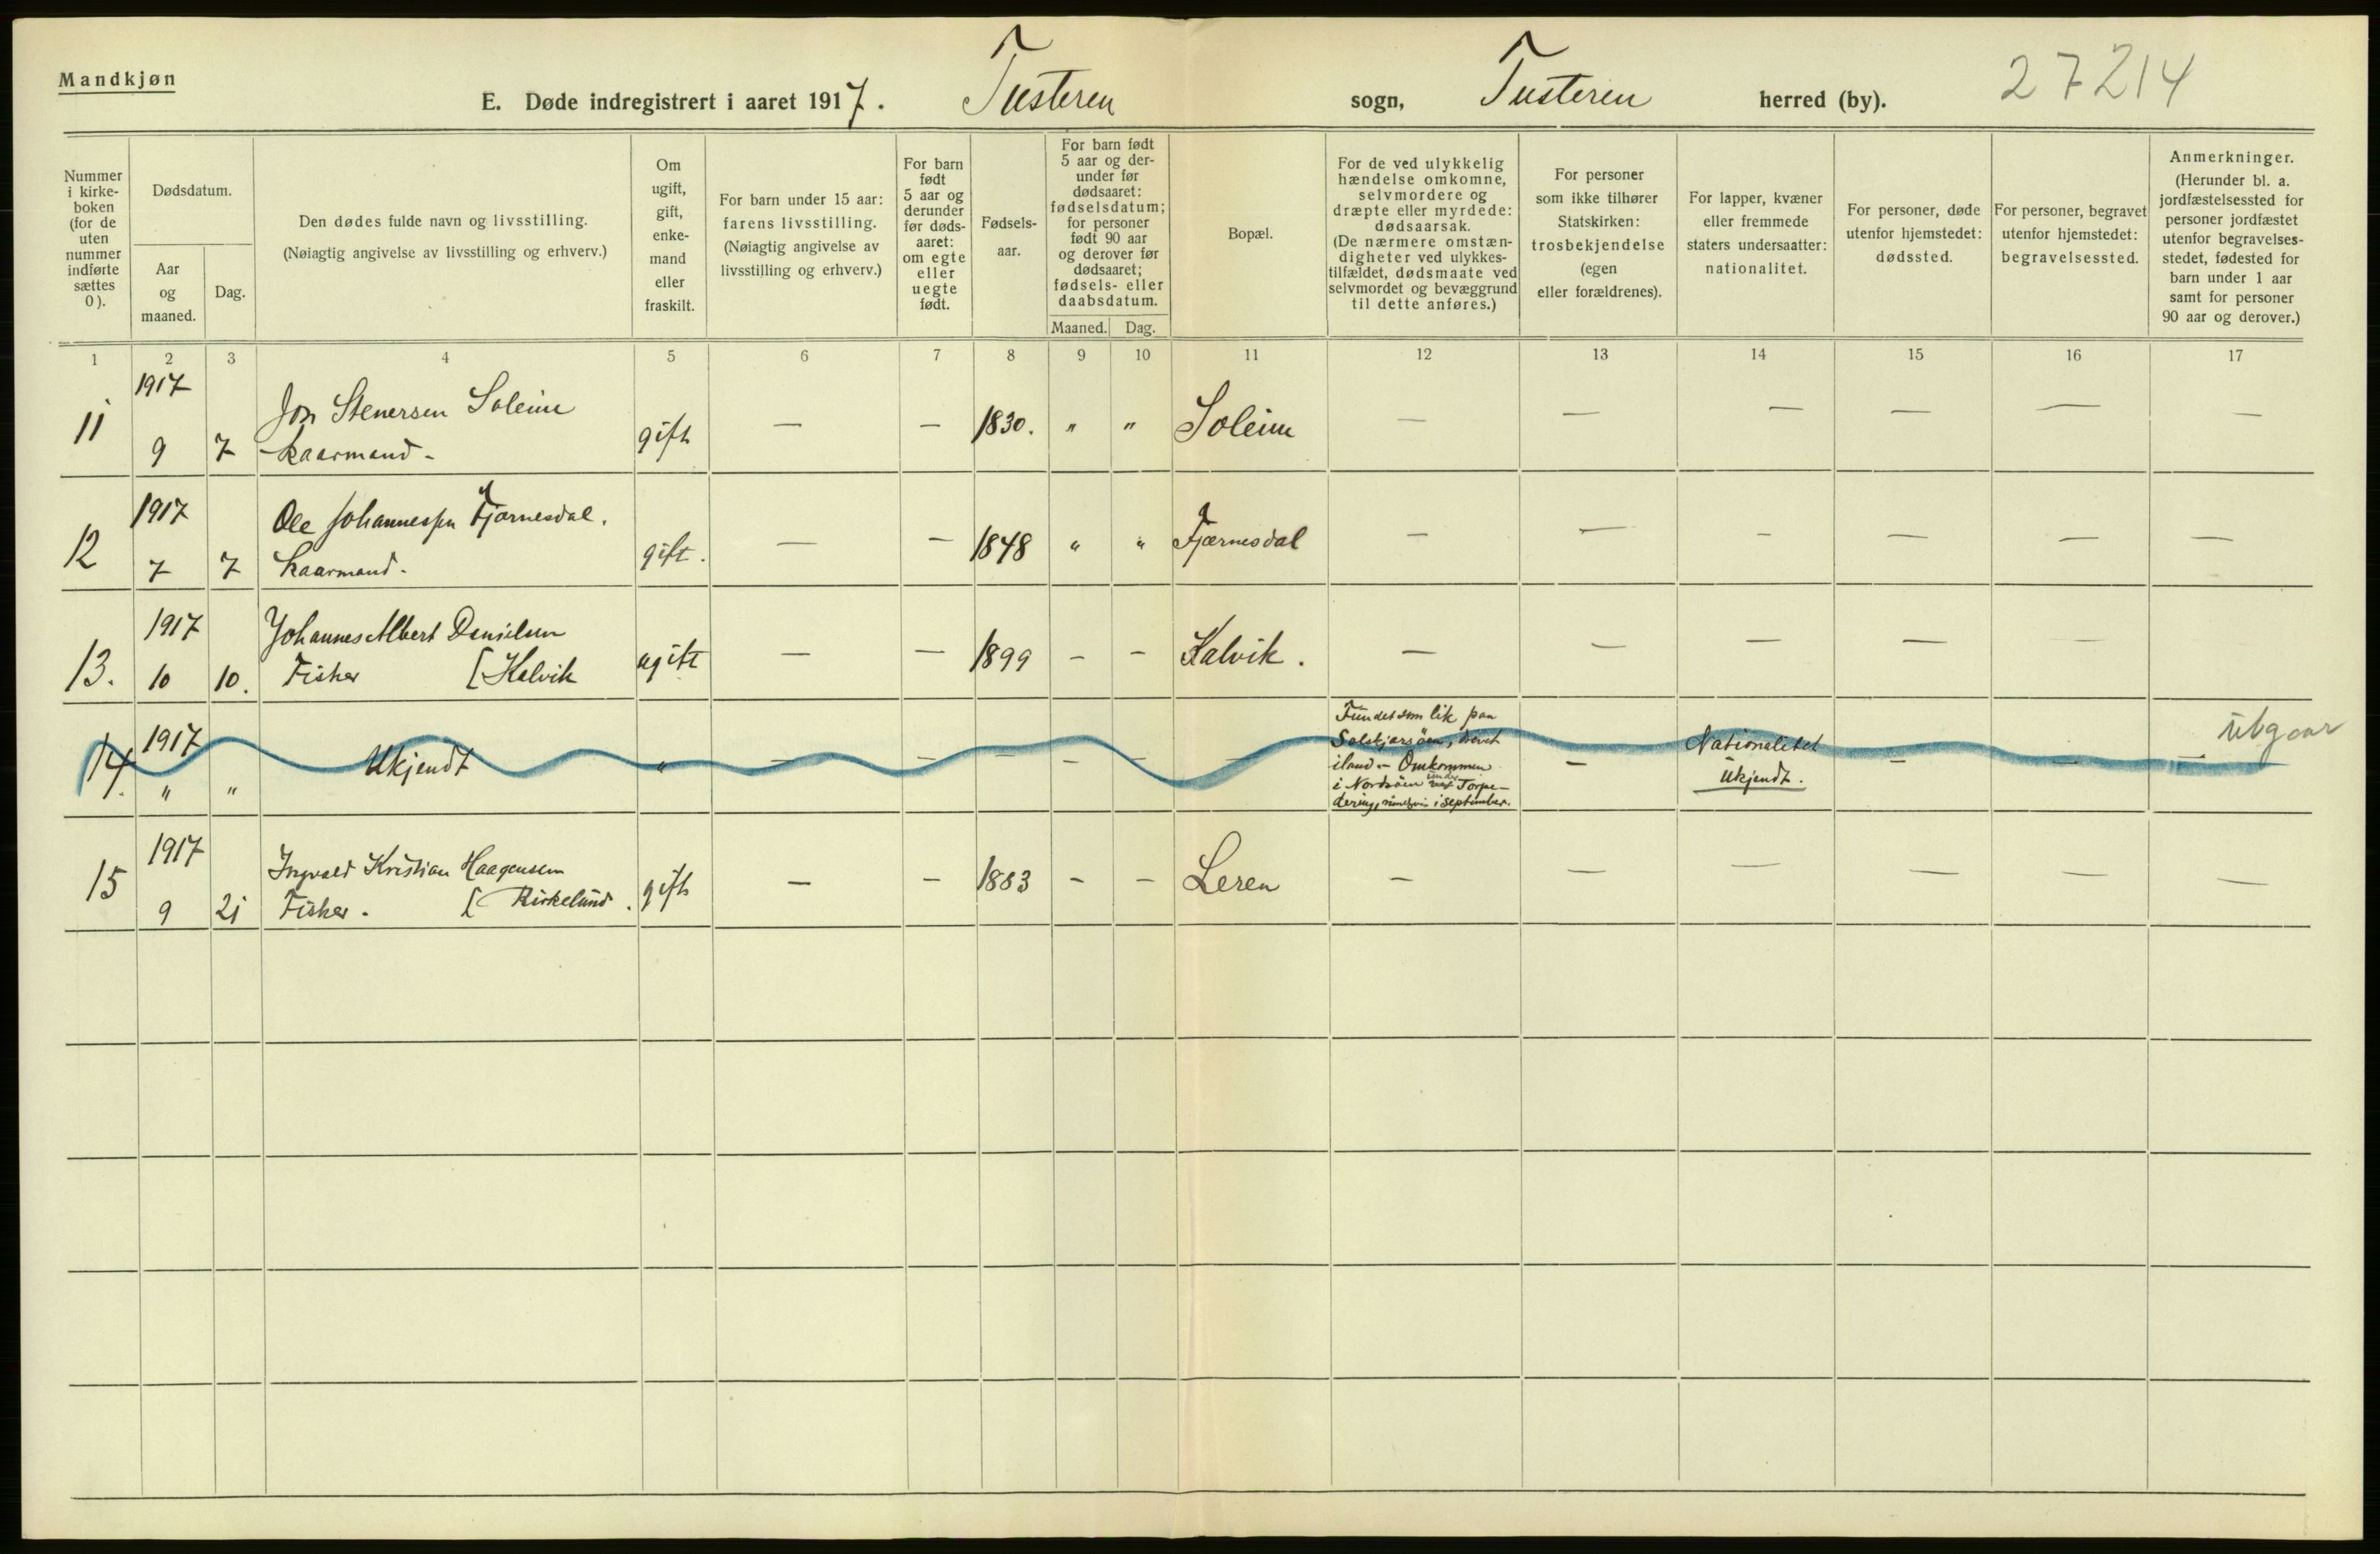 Mandkjøn
E. Døde indregistrert i aaret 1917. Tusteren sogn, Tusteren herred (by). 27214
Nummer i kirke-boken (for de uten nummer indførte sættes 0).
Dødsdatum.
Aar og maaned.
Dag.
Den dødes fulde navn og livsstilling.
(Nøiagtig angivelse av livsstilling og erhverv.)
Om ugift, gift, enke-mand eller fraskilt.
For barn under 15 aar: farens livsstilling.
(Nøiagtig angivelse av livsstilling og erhverv.)
For barn født 5 aar og derunder før døds-aaret: om egte eller uegte født.
Fødsels-aar.
For barn født 5 aar og der-under før dødsaaret: fødselsdatum; for personer født 90 aar og derover før dødsaaret; fødsels- eller daabsdatum.
Maaned. Dag.
Bopæl.
For de ved ulykkelig hændelse omkomne, selvmordere og dræpte eller myrdede: dødsaarsak.
(De nærmere omstæn-digheter ved ulykkes-tilfældet, dødsmaate ved selvmordet og bevæggrund til dette anføres.)
For personer som ikke tilhører Statskirken: trosbekjendelse (egen eller forældrenes).
For lapper, kvæner eller fremmede staters undersaatter: nationalitet.
For personer, døde utenfor hjemstedet: dødssted.
For personer, begravet utenfor hjemstedet: begravelsessted.
Anmerkninger.
(Herunder bl. a. jordfæstelsessted for personer jordfæstet utenfor begravelses-stedet, fødested for barn under 1 aar samt for personer 90 aar og derover.)
1 2 3 4 5 6 7 8 9 10 11 12 13 14 15 16 17
1917
Jon Stenersen Soleim
11 9 7 kaarmand - gift — — 1830. " " Soleim — — — — — —
1917
Ole Johannessen Fjærnesdal.
12 7 7 kaarmand. gift. — — 1848 " " Fjærnesdal — — — — — —
1917
Johannes Albert Danielsen
13. 10 10. Fisker [Kalvik ugift — — 1899 - - Kalvik. — — — — —
1917
14. " " Ukjendt " — — — — — —
Fundet som lik paa
Solskjærsöen, drevet
iland. - Omkommen
i Nordsöen under Torpe-
dering, i september.
— Nationalitet
Ukjendt.
— — — utgaar
1917
Ingvald Kristian Haagensen
15 9 21 Fisker. [Kirkelund. gift — — 1883 - - Leren — — — — — —